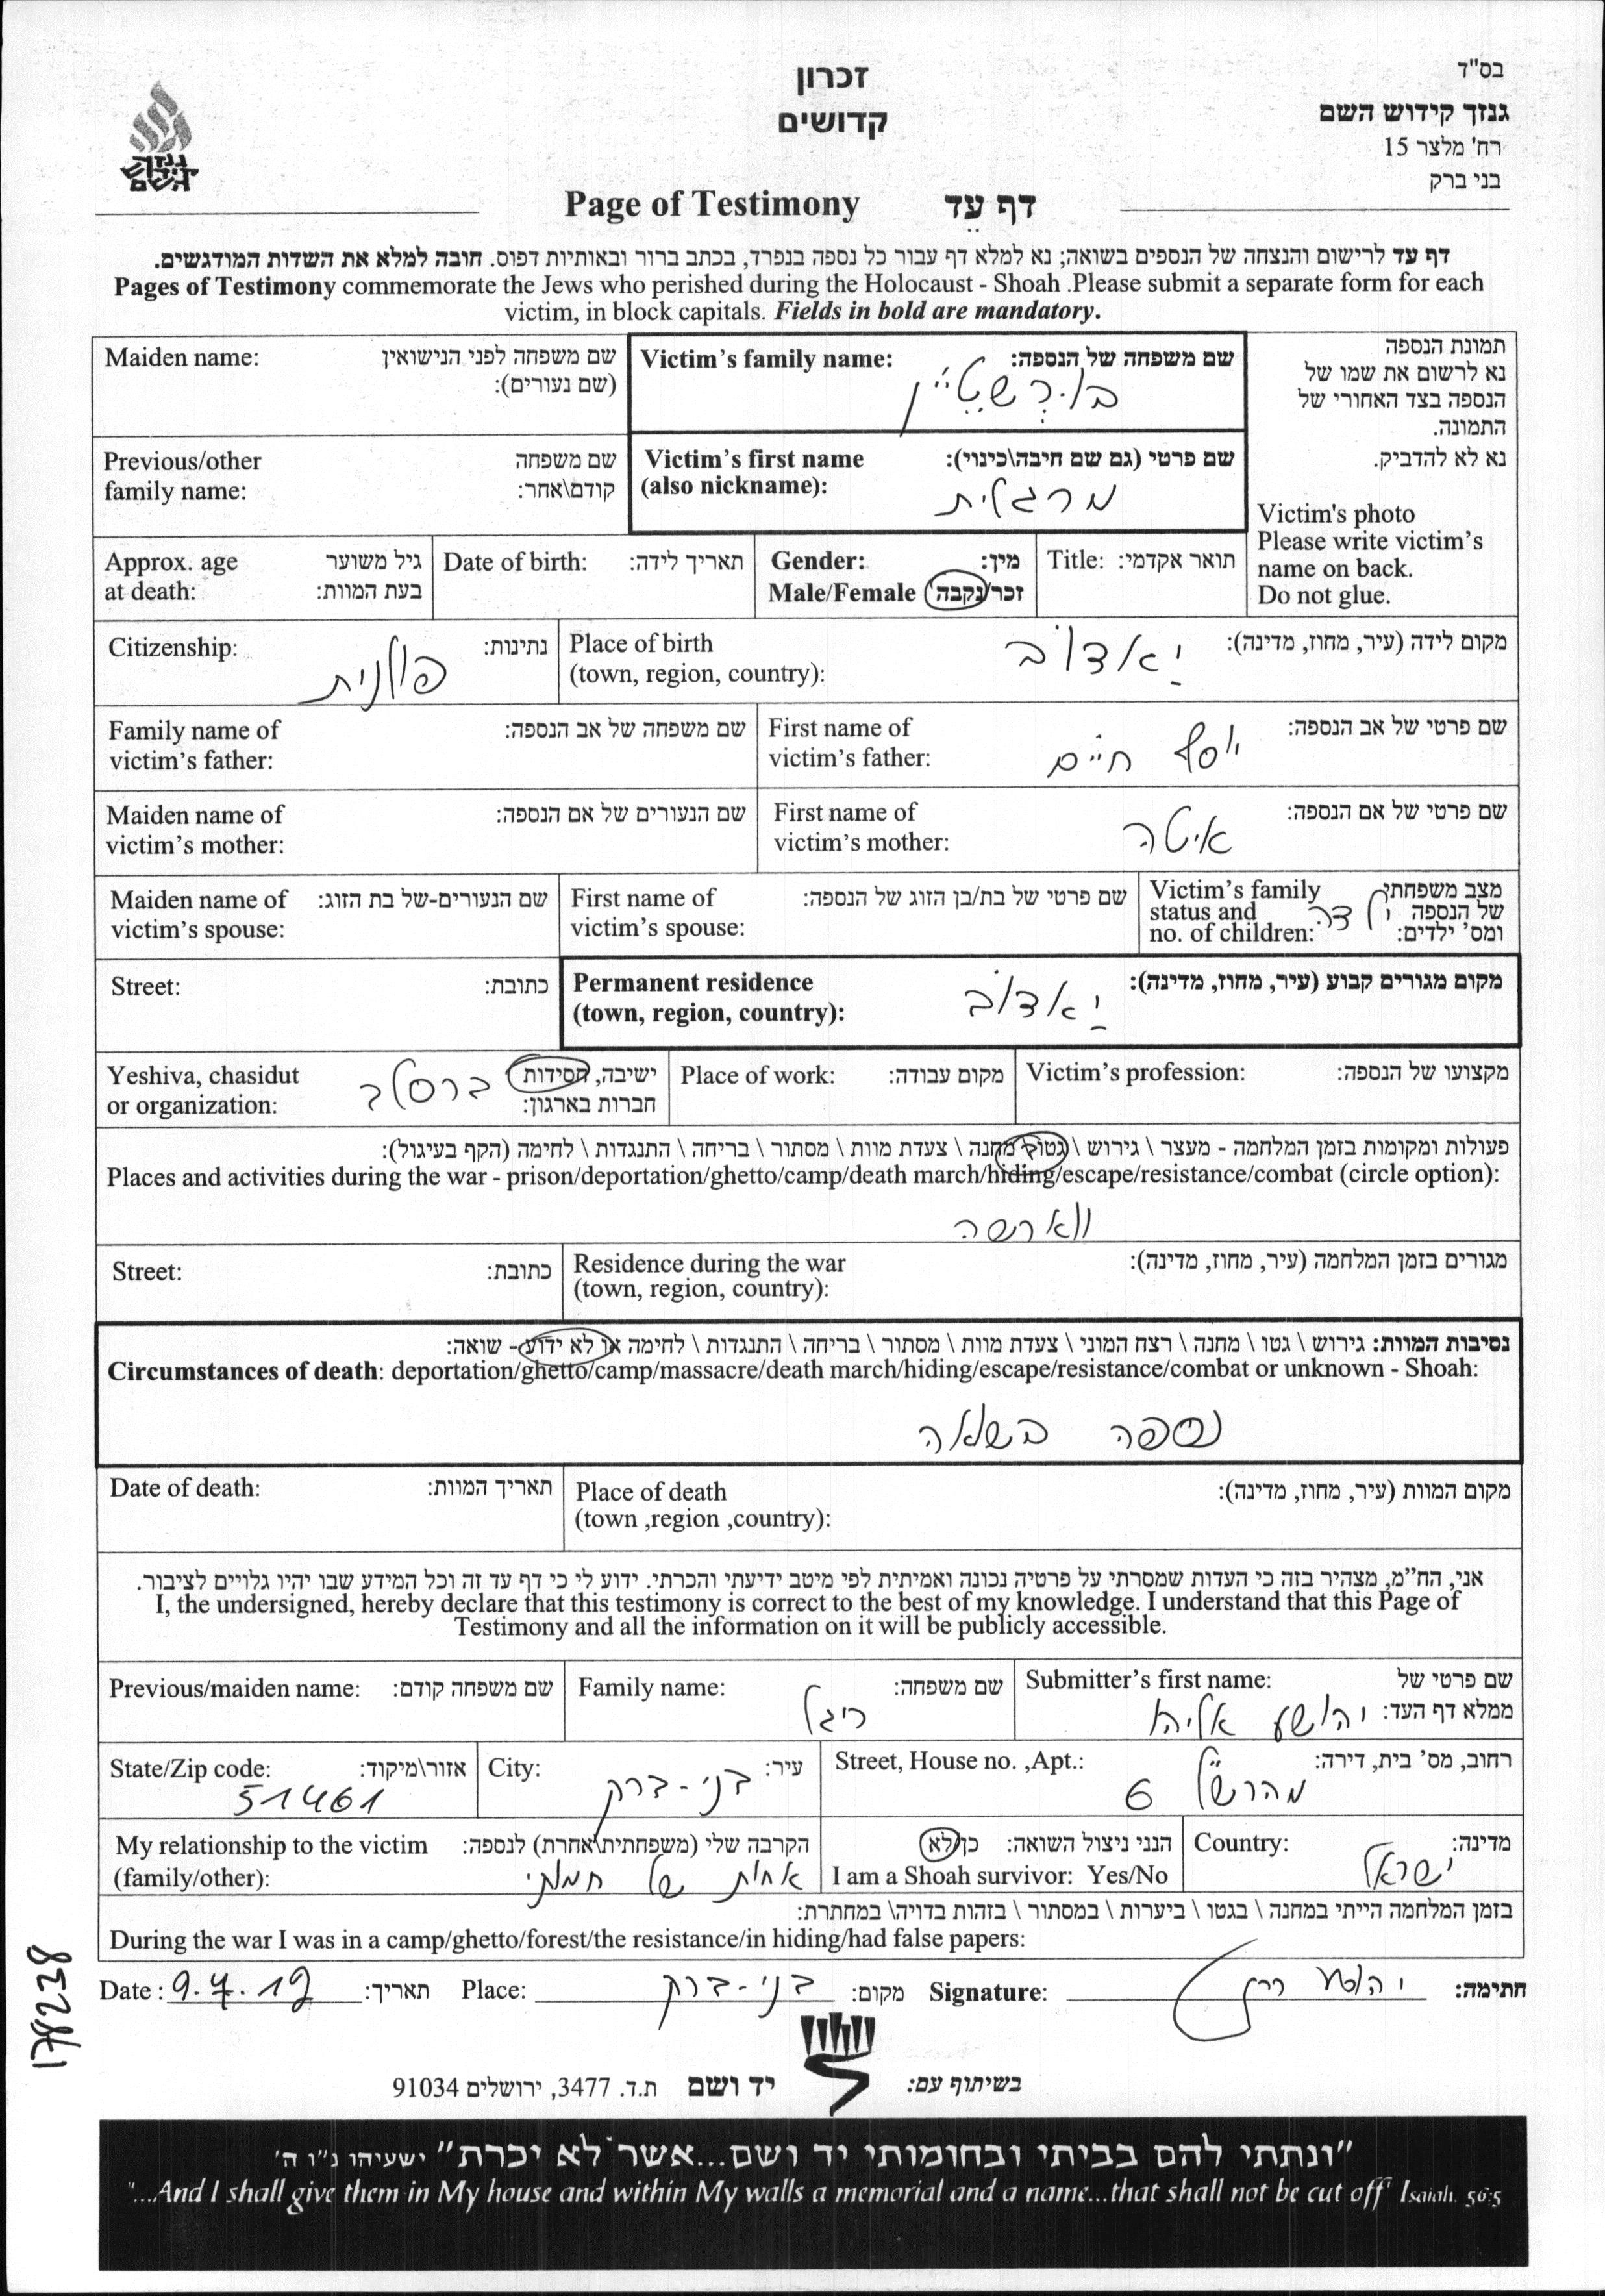 בס"ד
גנזך קידוש השם
רח' מלצר 15
בני ברק
זכרון
קדושים
גנזך
קידוש
השם
Page of Testimony דף עֵד
דף עד לרישום והנצחה של הנספים בשואה; נא למלא דף עבור כל נספה בנפרד, בכתב ברור ובאותיות דפוס. חובה למלא את השדות המודגשים.
Pages of Testimony commemorate the Jews who perished during the Holocaust - Shoah .Please submit a separate form for each
victim, in block capitals. Fields in bold are mandatory.
תמונת הנספה
נא לרשום את שמו של
הנספה בצד האחורי של
התמונה.
נא לא להדביק.
Victim's photo
Please write victim's
name on back.
Do not glue.
Victim's family name: שם משפחה של הנספה:
Maiden name: שם משפחה לפני הנישואין
(שם נעורים):
Victim's first name שם פרטי (גם שם חיבה\כינוי):
(also nickname): מרגלית
Previous/other שם משפחה
family name: קודם\אחר:
Title: תואר אקדמי:
Gender: מין:
Male/Female זכר/נקבה
Date of birth: תאריך לידה:
Approx. age גיל משוער
at death: בעת המוות:
Place of birth מקום לידה (עיר, מחוז, מדינה):
(town, region, country): יאדוב
Citizenship: נתינות:
פולנית
First name of שם פרטי של אב הנספה:
victim's father: יוסף חיים
Family name of שם משפחה של אב הנספה:
victim's father:
First name of שם פרטי של אם הנספה:
victim's mother: איטה
Maiden name of שם הנעורים של אם הנספה:
victim's mother:
Victim's family מצב משפחתי
status and של הנספה ילדה
no. of children: ומס' ילדים:
First name of שם פרטי של בת/בן הזוג של הנספה:
victim's spouse:
Maiden name of שם הנעורים-של בת הזוג:
victim's spouse:
Permanent residence מקום מגורים קבוע (עיר, מחוז, מדינה):
(town, region, country): יאדוב
Street: כתובת:
Victim's profession: מקצועו של הנספה:
Place of work: מקום עבודה:
Yeshiva, chasidut ישיבה, חסידות ברסלב
or organization: חברות בארגון:
פעולות ומקומות בזמן המלחמה - מעצר \ גירוש \ גטו \ מחנה \ צעדת מוות \ מסתור \ בריחה \ התנגדות \ לחימה (הקף בעיגול):
Places and activities during the war - prison/deportation/ghetto/camp/death march/hiding/escape/resistance/combat (circle option):
ווארשה
Residence during the war מגורים בזמן המלחמה (עיר, מחוז, מדינה):
(town, region, country):
Street: כתובת:
נסיבות המוות: גירוש \ גטו \ מחנה \ רצח המוני \ צעדת מוות \ מסתור \ בריחה \ התנגדות \ לחימה או לא ידוע - שואה:
Circumstances of death: deportation/ghetto/camp/massacre/death march/hiding/escape/resistance/combat or unknown - Shoah:
נספה בשואה
Place of death מקום המוות (עיר, מחוז, מדינה):
(town ,region ,country):
Date of death: תאריך המוות:
אני, הח"מ, מצהיר בזה כי העדות שמסרתי על פרטיה נכונה ואמיתית לפי מיטב ידיעתי והכרתי. ידוע לי כי דף עד זה וכל המידע שבו יהיו גלויים לציבור.
I, the undersigned, hereby declare that this testimony is correct to the best of my knowledge. I understand that this Page of
Testimony and all the information on it will be publicly accessible.
Submitter's first name: שם פרטי של
ממלא דף העד: יהושע אליהו
Family name: שם משפחה:
ריגל
Previous/maiden name: שם משפחה קודם:
Street, House no. ,Apt.: רחוב, מס' בית, דירה:
מהרש"ל 6
City: עיר:
בני-ברק
State/Zip code: אזור\מיקוד:
51461
Country: מדינה:
ישראל
הנני ניצול השואה: כן\לא
I am a Shoah survivor: Yes/No
My relationship to the victim הקרבה שלי (משפחתית\אחרת) לנספה:
(family/other): אחות של חמותי
בזמן המלחמה הייתי במחנה \ בגטו \ ביערות \ במסתור \ בזהות בדויה\ במחתרת:
During the war I was in a camp/ghetto/forest/the resistance/in hiding/had false papers:
Date : 9.7.19 תאריך: Place: בני-ברק מקום: Signature: חתימה:
178238
בשיתוף עם: יד ושם ת.ד. 3477, ירושלים 91034
"ונתתי להם בביתי ובחומותי יד ושם...אשר לא יכרת" ישעיהו נ"ו ה'
"...And I shall give them in My house and within My walls a memorial and a name...that shall not be cut off" Isaiah. 56:5